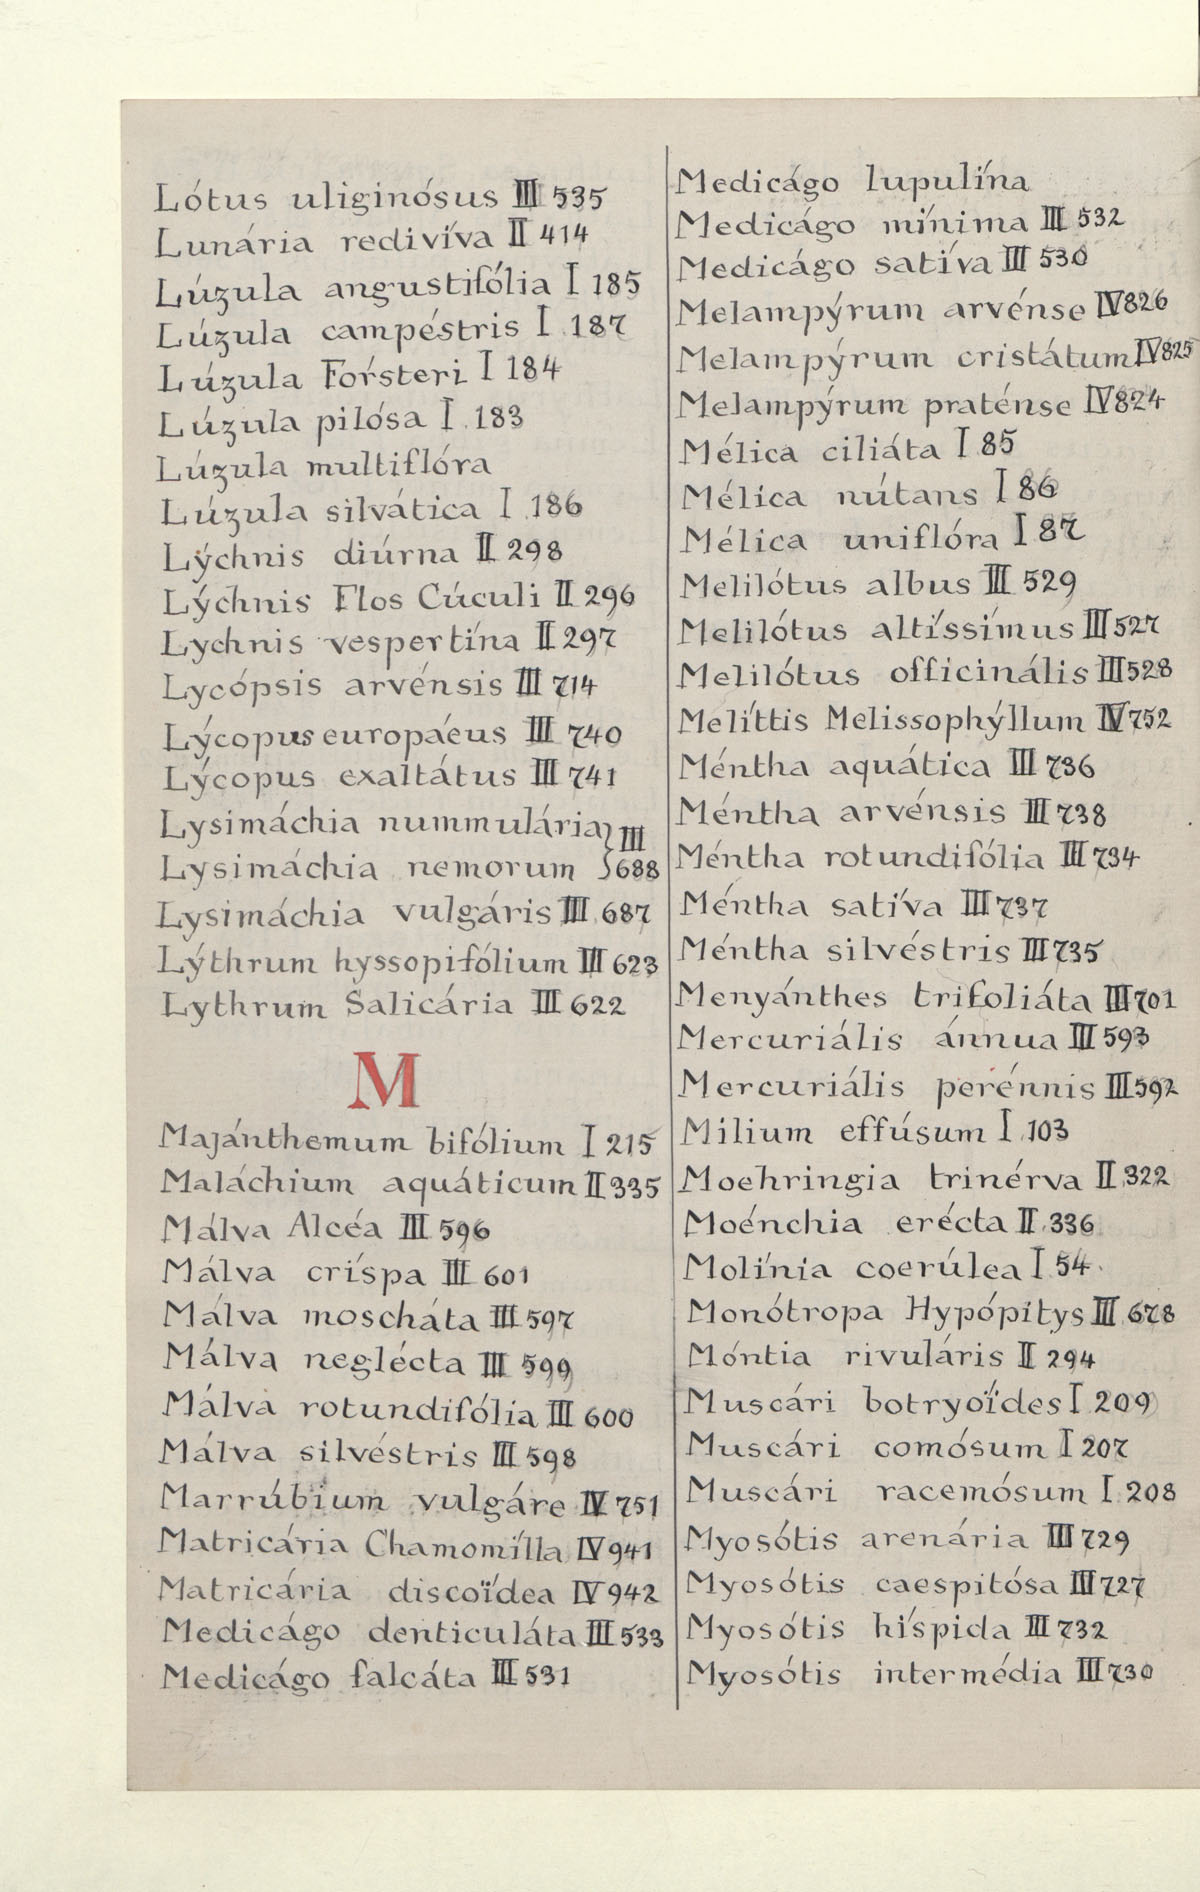 Lótus uliginósus III 535
Lunária redivíva II 414
Lúzula angustifólia I 185
Lúzula campéstris I 187
Lúzula Forsteri I 184
Lúzula pilósa I 183
Lúzula multiflóra
Lúzula silvática I 186
Lýchnis diúrna II 298
Lýchnis Flos Cúculi II 296
Lychnis vespertína II 297
Lycópsis arvénsis III 714
Lýcopus europáeus III 740
Lýcopus exaltátus III 741
Lysimáchia nummulária } III
Lysimáchia nemorum } 688
Lysimáchia vulgáris III 687
Lýthrum hyssopifólium III 623
Lythrum Salicária III 622
M
Majánthemum bifólium I 215
Maláchium aquáticum II 335
Málva Alcéa III 596
Málva críspa III 601
Málva moscháta III 597
Málvaneglécta III 599
Málva rotundifólia III 600
Málva silvéstris III 598
Marrúbium vulgáre IV 751
Matricária Chamomílla IV 941
Matricária discoïdea IV 942
Medicágo denticuláta III 533
Medicágo falcáta III 531
Medicágo lupulína
Medicágo mínima III 532
Medicágo satíva III 530
Melampýrum arvénse IV 826
Melampýrum cristátum IV 825
Melampýrum praténse IV 824
Mélica ciliáta I 85
Mélica nútans I 86
Mélica uniflóra I 87
Melilótus albus III 529
Melilótus altíssimus III 527
Melilótus officinális III 528
Melíttis Melissophýllum IV 752
Méntha aquática III 736
Méntha arvénsis III 738
Méntha rotundifólia III 734
Méntha satíva III 737
Méntha silvéstris III 735
Menyánthes trifoliáta III 701
Mercuriális ánnua III 593
Mercuriális perénnis III 592
Milium effúsum I 103
Moehringia trinérva II 322
Moénchia erécta II 336
Molínia coerúlea I 54
Monótropa Hypópitys III 678
Móntia rivuláris II 294
Muscári botryoïdes I 209
Muscári comósum I 207
Muscári racemósum I 208
Myosótis arenária III 729
Myosótis caespitósa III 727
Myosótis híspida III 732
Myosótis intermédia III 730